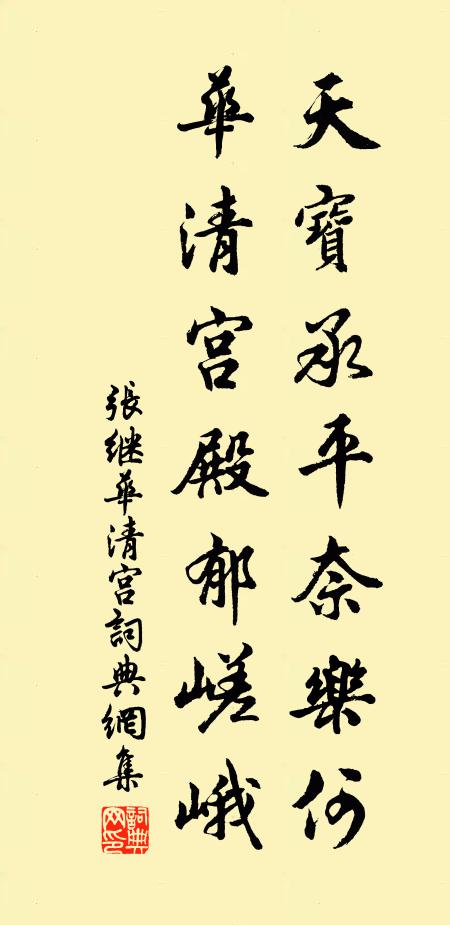 天寶承平奈樂何
華清宮殿郁嵯峨
張继華清宮詞典網集
詞典网印